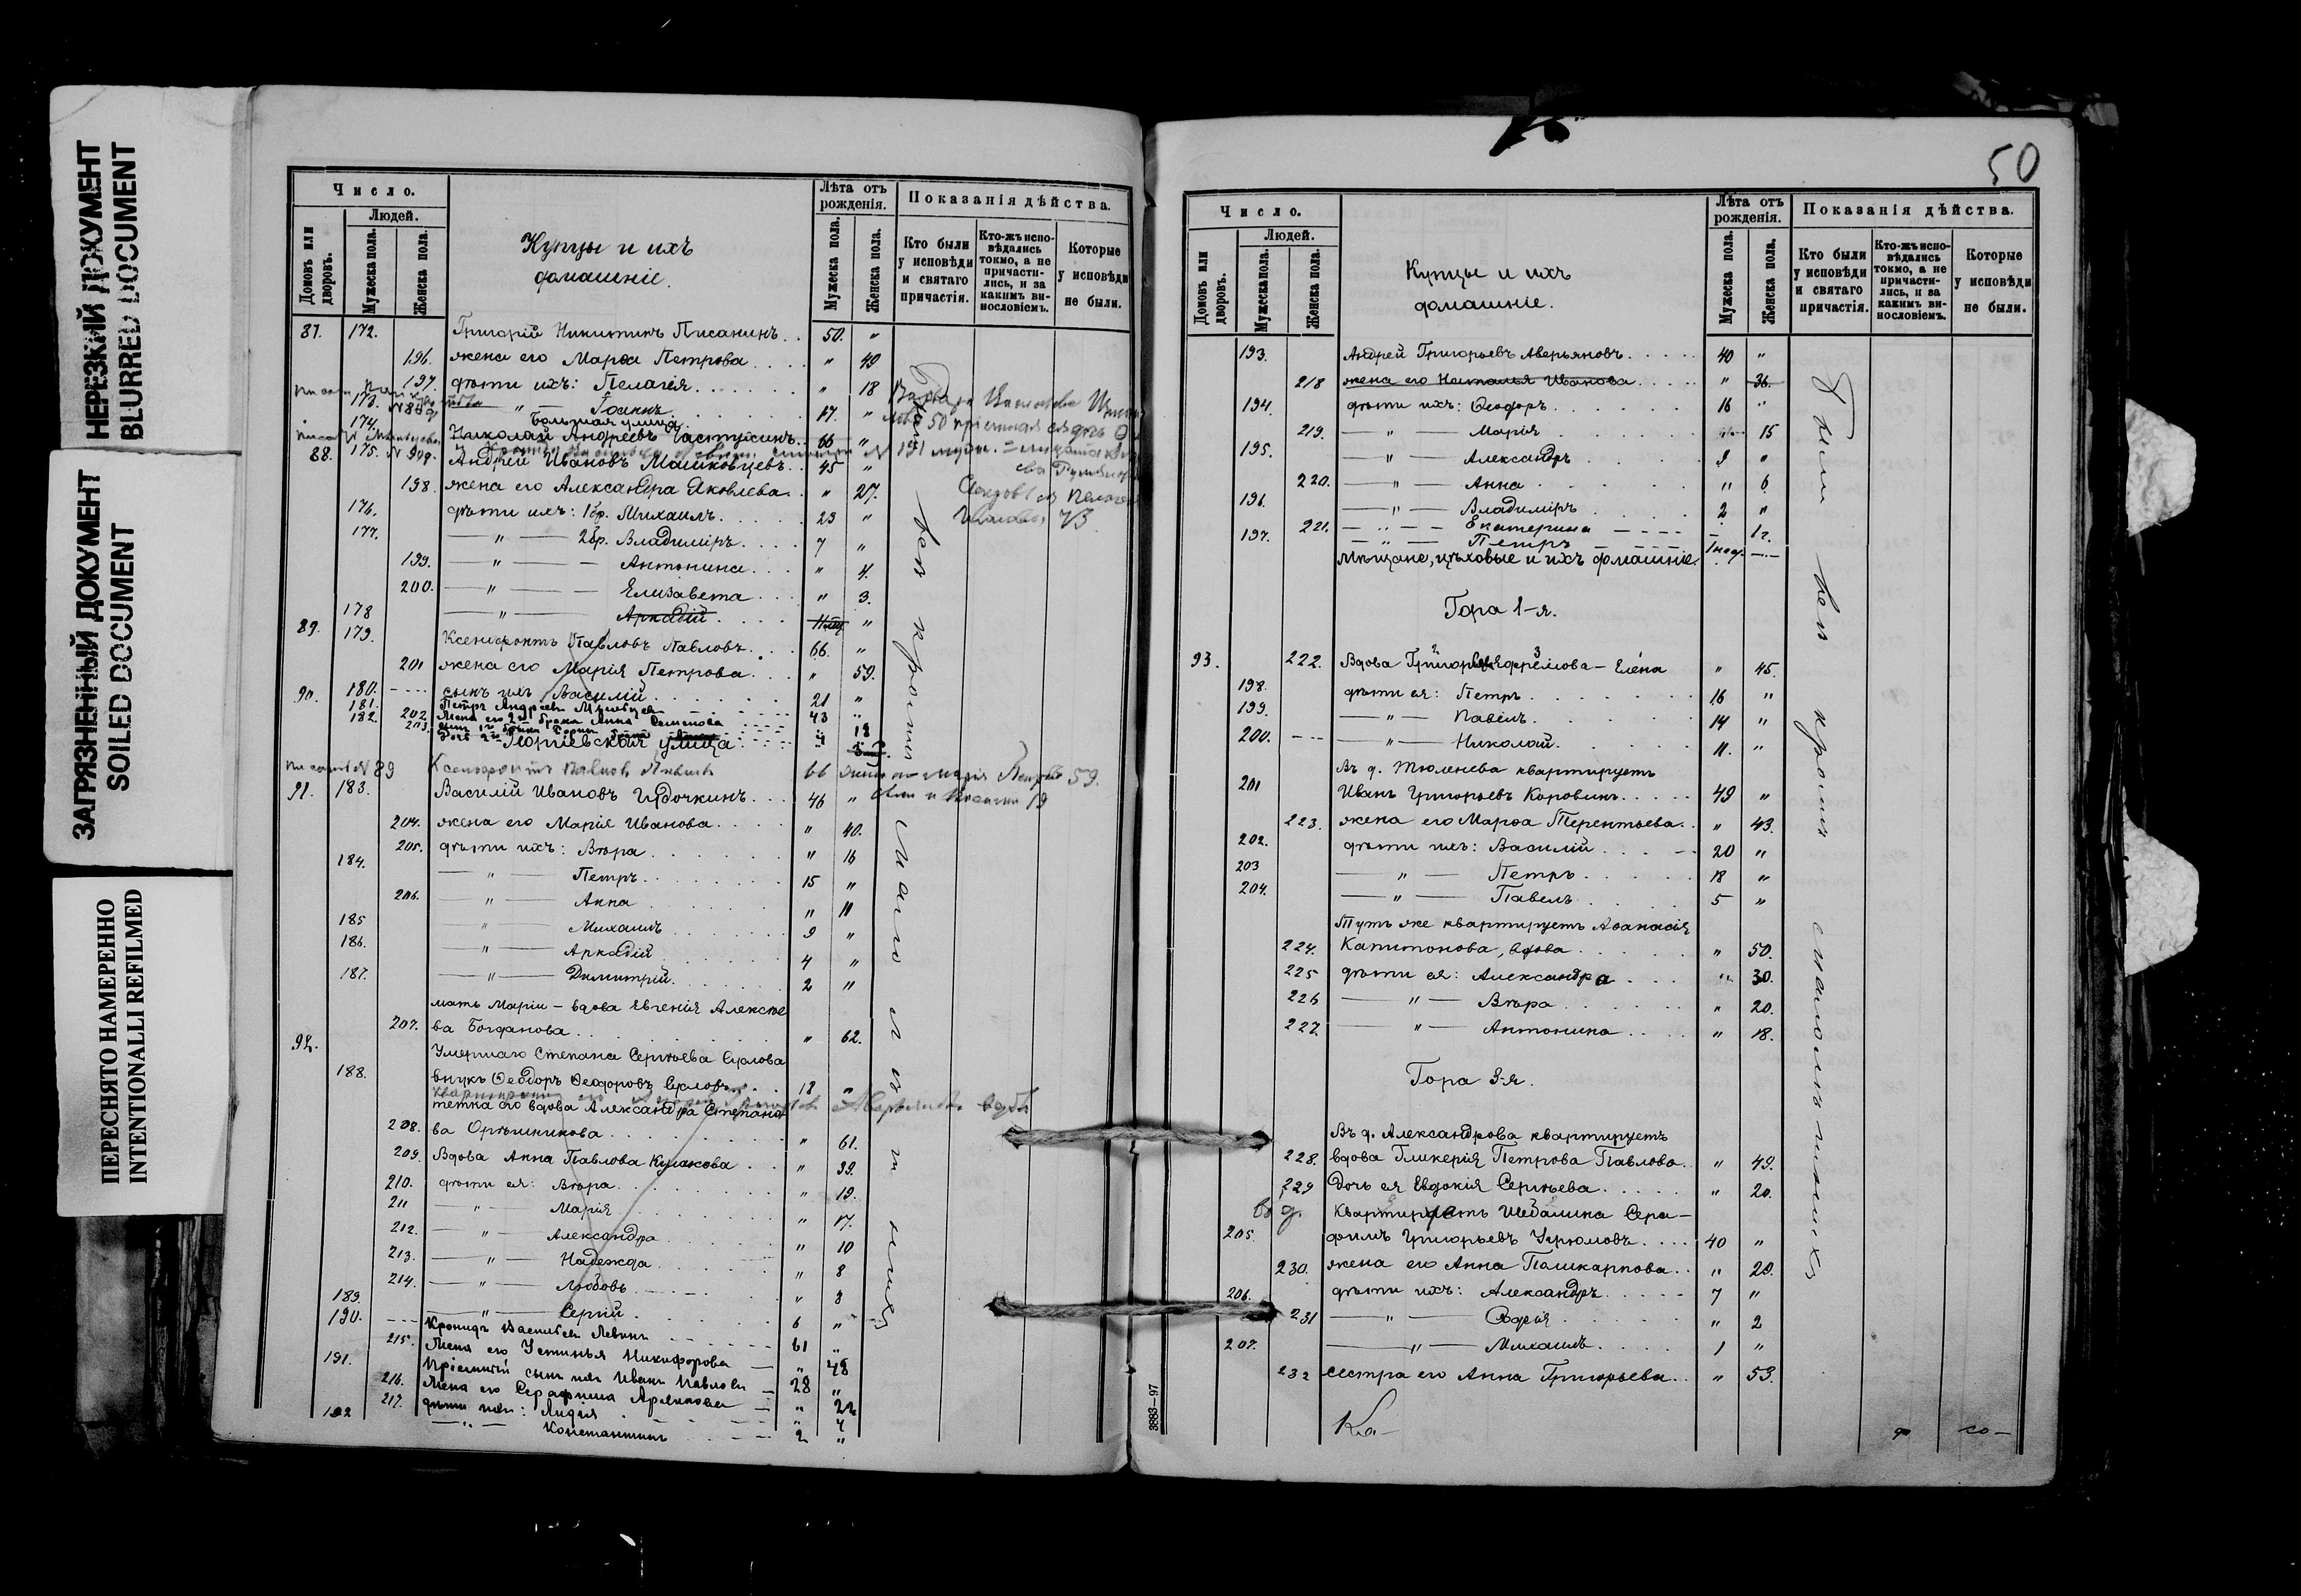 НЕРЕЗКИЙ ДОКУМЕНТ
BLURRED DOCUMENT
ЗАГРЯЗНЕННЫЙ ДОКУМЕНТ
SOILED DOCUMENT
ПЕРЕСНЯТО НАМЕРЕННО
INTENTIONALLI REFILMED
Число.
Людей.
Домовъ или дворовъ.
Мужеска пола.
Женска пола.
Купцы и ихъ
домашніе.
Лѣта отъ рожденія.
Мужеска пола.
Женска пола.
Показанія дѣйства.
Кто были у исповѣди и святаго причастія.
Кто-жъ исповѣдались токмо, а не причастились, и за какимъ винословіемъ.
Которые у исповѣди не были.
87. 172. Григорій Никитинъ Писанинъ . . 50. "
196. жена его Марѳа Петрова . . . . " 49
197. дѣти ихъ: Пелагія . . . . . . " 18
173. — " — Іоаннъ . . . . . 17. "
Большая улица
174. Николай Андреевъ . . 66 "
88. 175. Андрей Ивановъ Машковцевъ . . 45 "
198. жена его Александра Яковлева . . " 27.
176. дѣти ихъ: 1 бр. Михаилъ . . . . . 23 "
177. — " — 2 бр. Владиміръ . . . . 7 "
199. — " — Антонина . . . " 4.
200. — " — Елизавета . . . " 3.
178 — " — Аркадій . . . . "
89. 179. Ксенофонтъ Павловъ Павловъ . . . 66. "
201 жена его Марія Петрова . . . " 59.
90. 180. сынъ ихъ Василій . . . . . . 21 "
181. Петръ Андреевъ 43 "
182. 202. Жена его 2го брака Анна Семенова
203.
Георгіевская улица
№ 89 Ксенофонтъ Павловъ Павловъ 66 жена его Марія Петрова 59.
91. 183. Василій Ивановъ . . . 46 "
204. жена его Марія Иванова . . . . " 40.
205. дѣти ихъ: Вѣра . . . . . . " 16
184. — " — Петръ . . . . . . . 15 "
206. — " — Анна . . . . . . " 11
185 — " — Михаилъ . . . . . . 9 "
186. — " — Аркадій . . . . . . 4 "
187. — " — Димитрій . . . . . . 2 "
мать Маріи — вдова Евгенія Алексѣе
207. ва Богданова . . . . . . . . " 62.
92. Умершаго Степана Сергѣева
188. внукъ Ѳеодоръ Ѳеодоровъ . . 12 "
тетка его вдова Александра Степано
208. ва Орѣшникова . . . . . . . " 61.
209. Вдова Анна Павлова Кулакова . . " 39.
210. дѣти ея: Вѣра . . . . . . . " 19.
211 — " — Марія . . . . . . " 17.
212. — " — Александра . . . . . " 10
213. — " — Надежда . . . . . " 8
214. — " — Любовь . . . . . " 8
189. — " — Сергій . . . . . . 6 "
190. Кронидъ Васильевъ Левинъ 61 "
215. Жена его Устинья Никифорова — " 48
191. Пріемный сынъ ихъ Иванъ Павловъ — 28 "
216. Жена его Серафима " 22
217. дѣти ихъ: Лидія " 4
192 — " — Константинъ 2 "
Были вси кромѣ малолѣтнихъ
50
Число.
Людей.
Домовъ или дворовъ.
Мужеска пола.
Женска пола.
Купцы и ихъ
домашніе.
Лѣта отъ рожденія.
Мужеска пола.
Женска пола.
Показанія дѣйства.
Кто были у исповѣди и святаго причастія.
Кто-жъ исповѣдались токмо, а не причастились, и за какимъ винословіемъ.
Которые у исповѣди не были.
193. Андрей Григорьевъ Аверьяновъ . . . . . 40 "
218 жена его Наталья Иванова . . . . " 36.
194. дѣти ихъ: Ѳеодоръ . . . . . . 16 "
219. — " — Марія . . . . . 15
195. — " — Александръ . . . . . 9 "
220. — " — Анна . . . . . " 6.
196. — " — Владиміръ . . . . 2 "
221. — " — Екатерина — 12.
197. — " — Петръ
Мѣщане, цѣховые и ихъ домашніе.
Гора 1-я.
93. 222. Вдова Ефремова — Елена " 45.
198. дѣти ея: Петръ . . . . . . . 16 "
199. — " — Павелъ . . . . . . 14 "
200. — " — Николай . . . . . . 11. "
Въ д. Тюленева квартируетъ
201 Иванъ Григорьевъ Коровинъ . . . . . 49 "
223. жена его Марѳа Терентьева . . " 43.
202. дѣти ихъ: Василій . . . — 20 "
203 — " — Петръ . . . . . 18 "
204. — " — Павелъ . . . . 5 "
Тутъ же квартируетъ Аѳанасія
224. Капитонова, вдова . . . . . " 50.
225 дѣти ея: Александра . . . " 30.
226 — " — Вѣра . . . . . " 20.
227. — " — Антонина . . . . " 18.
Гора 3-я.
Въ д. Александрова квартируетъ
228. вдова Гликерія Петрова Павлова . . " 49.
229 дочь ея Евдокія Сергѣева . . . . . " 20.
въ д. Квартируетъ Шебалина Сера-
205. фимъ Григорьевъ Угрюмовъ . . . . 40 "
230. жена его Анна Поликарпова . . " 29.
206. дѣти ихъ: Александръ . . . . — 7 "
231 — " — Софія . . . . . . " 2
207. — " — Михаилъ . . . . 1 "
232 сестра его Анна Григорьева . . " 53.
Были вси кромѣ малолѣтнихъ
Ка- со-
3883—97